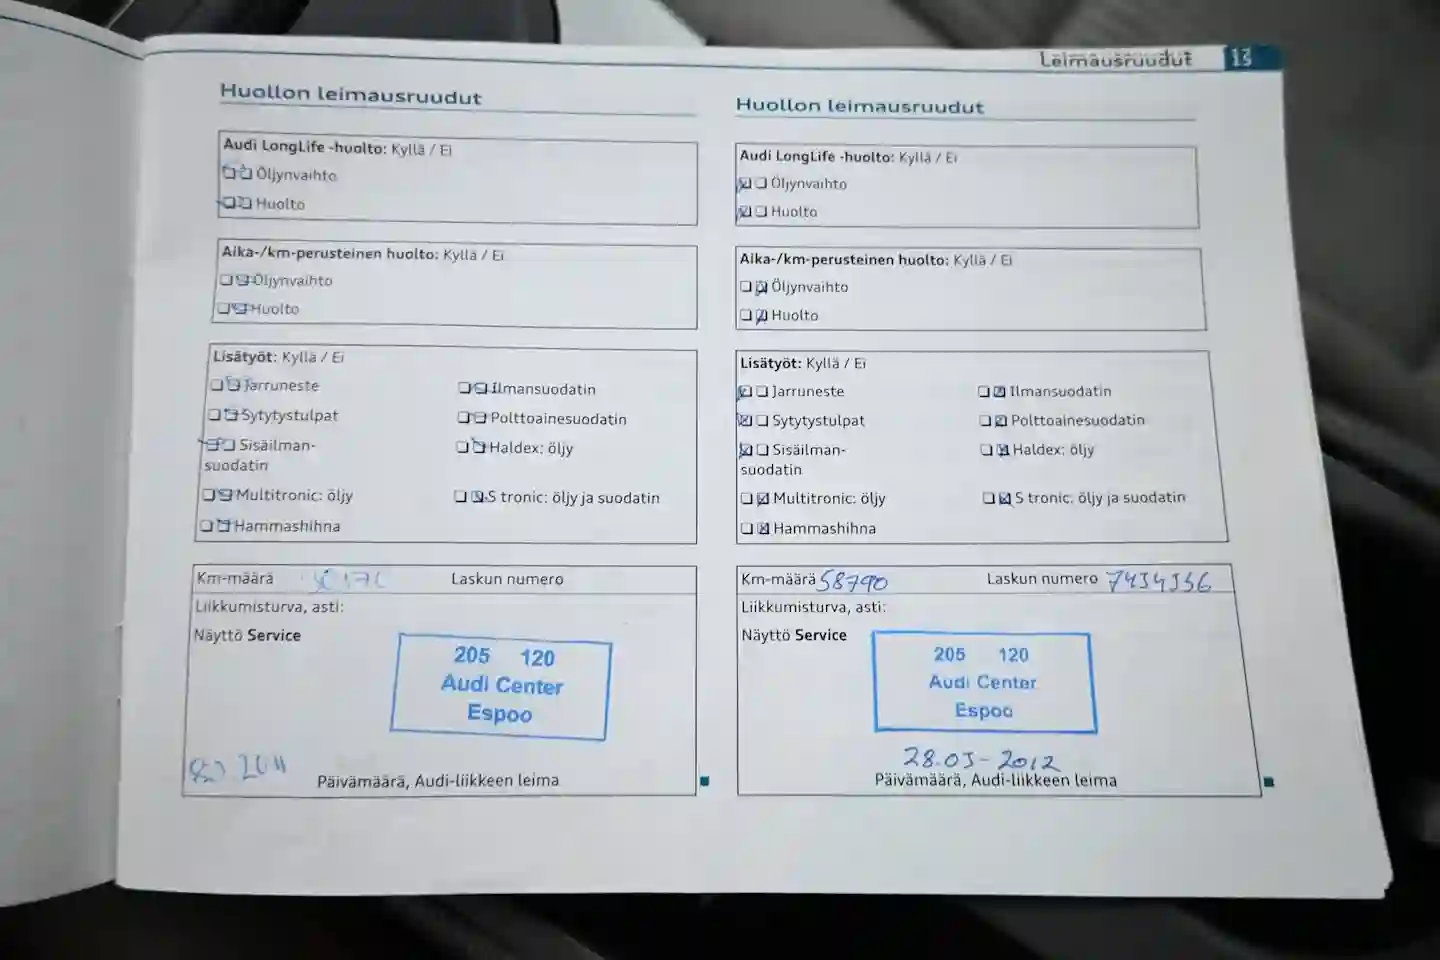 Leimausruudut 13
Huollon leimausruudut
Audi LongLife -huolto: Kyllä / Ei
Öljynvaihto
Huolto
Aika-/km-perusteinen huolto: Kyllä / Ei
Öljynvaihto
Huolto
Lisätyöt: Kyllä / Ei
Jarruneste
Ilmansuodatin
Sytytystulpat
Polttoainesuodatin
Sisäilman-
suodatin
Haldex: öljy
Multitronic: öljy
S tronic: öljy ja suodatin
Hammashihna
Km-määrä
Laskun numero
Liikkumisturva, asti:
Näyttö Service
205 120
Audi Center
Espoo
2011
Päivämäärä, Audi-liikkeen leima
Huollon leimausruudut
Audi LongLife -huolto: Kyllä / Ei
Öljynvaihto
Huolto
Aika-/km-perusteinen huolto: Kyllä / Ei
Öljynvaihto
Huolto
Lisätyöt: Kyllä / Ei
Jarruneste
Ilmansuodatin
Sytytystulpat
Polttoainesuodatin
Sisäilman-
suodatin
Haldex: öljy
Multitronic: öljy
S tronic: öljy ja suodatin
Hammashihna
Km-määrä 58790
Laskun numero
Liikkumisturva, asti:
Näyttö Service
205 120
Audi Center
Espoo
Päivämäärä, Audi-liikkeen leima